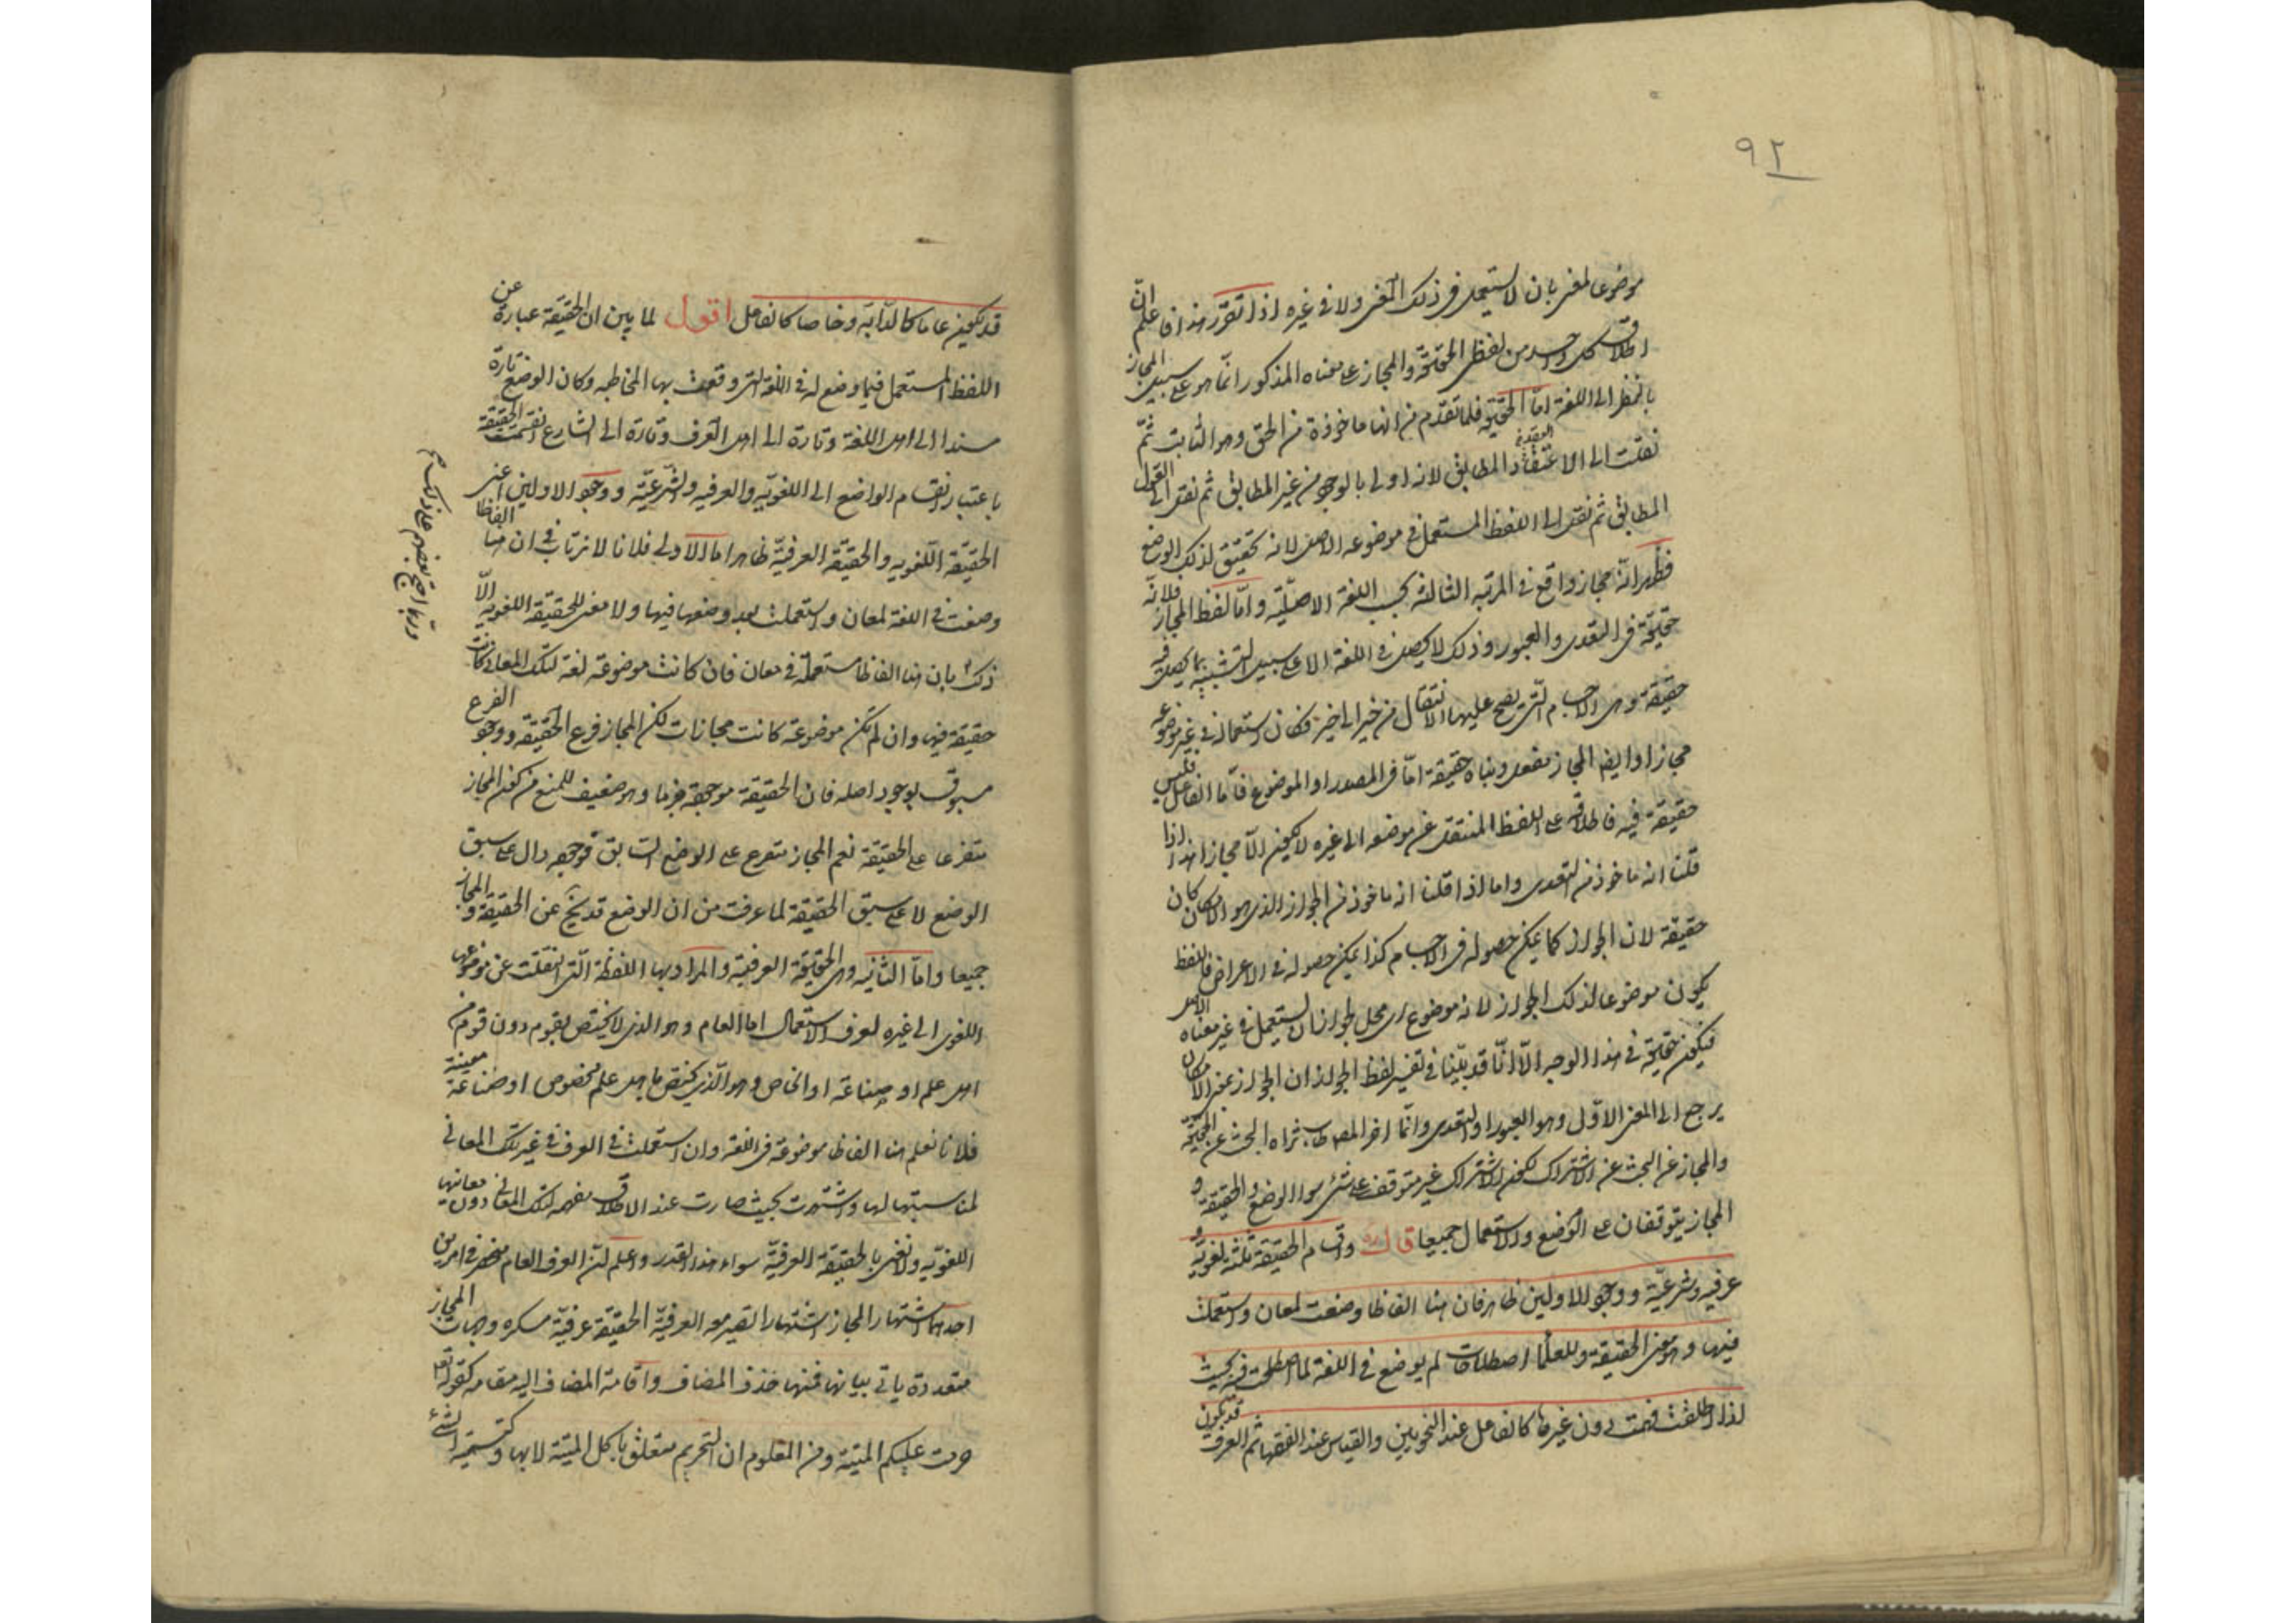 ٩٢
موضوعا لمعنى بان لا يستعمل فى ذلك المعنى ولا فى غيره اذا تقرر هذا فاعلم انّ
اطلاق كل واحد من لفظى الحقيقة والمجاز على معناه المذكور انّما هو على سبيل المجاز
بالنظر الى اللغة امّا الحقيقة فلما تقدّم من انها ماخوذة من الحق وهو الثابت ثمّ
نقلت الى الاعتقاد المطابق لانه اولى بالوجود من غير المطابق ثم نقل الى القول
المطابق ثم نقل الى اللفظ المستعمل فى موضوعه الاصلى لانه تحقيق لذلك الوضع
فظهر انّه مجاز واقع فى المرتبه الثالثة بحسب اللغة الاصليّة وامّا لفظ المجاز فلانّه
حقيقة فى التعدى والعبور وذلك لا يحصل فى اللغة الا على سبيل التشبيه بما يحصل فيه
حقيقة وهى الاجسام الّتى يصح عليها الانتقال من حيز الى اخر فكان استعماله فى غير موضوعه
مجازا وايضا المجاز مفعل وبناه حقيقة امّا فى المصدر او الموضوع فامّا الفاعل فليس
حقيقة فيه فاطلاقه على اللفظ المنتقل عن موضعه الى غيره لا يكون الّا مجازا هذا اذا
قلنا انه ماخوذ من التعدى واما اذا قلنا انه ماخوذ من الجواز الذى هو الامكان كان
حقيقة لان الجواز كما يمكن حصوله فى الاجسام كذا يمكن حصوله فى الاعراض فاللفظ
يكون موضوعا لذلك الجواز لانه موضوع اى محل لجواز ان يستعمل فى غير معناه الاصلى
فيكون حقيقة فى هذا الوجه الّا انّا قد بيّنا فى تفسير لفظ الجواز ان الجواز بمعنى الامكان
يرجع الى المعنى الاوّل وهو العبور او التعدى وانّما اخر المص طاب ثراه البحث عن الحقيقة
والمجاز عن البحث عن الاشتراك لكون الاشتراك غير متوقف على شئ سوى الوضع والحقيقة و
المجاز يتوقفان على الوضع والاستعمال جميعا قال واقسام الحقيقة ثلثة لغويّة و
عرفيه وشرعيّة ووجود الاولين ظاهر فان هنا الفاظا وضعت لمعان واستعملت
فيها وهو معنى الحقيقة وللعلما اصطلاحات لم يوضع فى اللغة لما اصطلحت فيه بحيث
اذا اطلقت فهمت دون غيرها كالفاعل عند النحويين والقياس عند الفقها ثم العرف قد يكون
قد يكون عاما كالدّابّة وخاصا كالفاعل اقول لما بين ان الحقيقة عبارة عن
اللفظ المستعمل فيما وضع له فى اللغة التى وقعت بها المخاطبه وكان الوضع تارة
مسندا الى اهل اللغة وتارة الى اهل العرف وتارة الى الشارع انقسمت الحقيقة
باعتبار انقسام الواضع الى اللغويّه والعرفيه والشرعيّة ووجود الاولين اعنى
الحقيقة اللّغويه والحقيقة العرفيّة ظاهر اما الاولى فلانا لا نرتاب فى ان هنا الفاظا
وضعت فى اللغة لمعان واستعملت بعد وضعها فيها ولا معنى للحقيقة اللغويه الّا
ذلك بان هنا الفاظا مستعملة فى معان فان كانت موضوعة لغة لتلك المعانى كانت
حقيقة فيها وان لم تكن موضوعة كانت مجازات لكن المجاز فرع الحقيقة ووجود الفرع
مسبوق بوجود اصله فان الحقيقة موجودة جزما وهو ضعيف للمنع من كون المجاز
متفرعا على الحقيقة نعم المجاز متفرع على الوضع السابق فوجوده دال على سبق
الوضع لا على سبق الحقيقة لما عرفت من ان الوضع قد يخ عن الحقيقة والمجاز
جميعا وامّا الثانيه وهى الحقيقة العرفية والمراد بها اللفظة الّتى انتقلت عن موضوعها
اللغوى الى غيره لعرف الاستعمال اما العام وهو الذى لا يختص بقوم دون قوم من
اهل علم او صناعة او الخاص وهو الّذى يختص باهل علم مخصوص او صناعة معينة
فلانا نعلم هنا الفاظا موضوعة فى اللغة وان استعملت فى العرف فى غير تلك المعانى
لمناسبتها لها واشتهرت بحيث صارت عند الاطلاق يفهم تلك المعانى دون معانيها
اللغويّه ولا نعنى بالحقيقة العرفيّة سوى هذا القدر واعلم انّ العرف العام منحصر فى امرين
احدهما اشتهار المجاز اشتهارا تصير معه العرفيّة الحقيقة عرفيّة مسكره وجهات المجاز
متعددة ياتى بيانها فمنها حذف المضاف واقامة المضاف اليه مقامه كقوله تع
حرمت عليكم الميتة ومن المعلوم ان التحريم متعلق باكل الميتة لا بها وكتسميه الشئ
وربما احتج بعضهم على ذلك